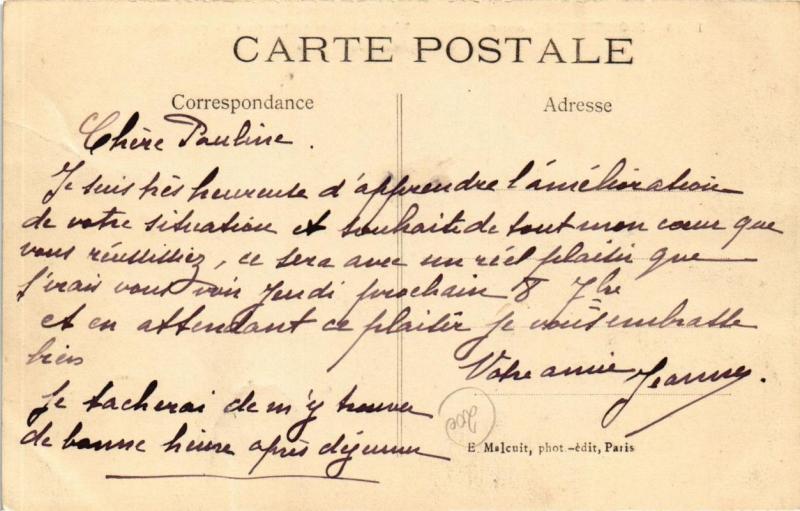 CARTE POSTALE
Correspondance
Adresse
Chère Pauline.
Je suis très heureuse d'apprendre l'amélioration
de votre situation et souhaite de tout mon cœur que
vous réussissiez, ce sera avec un réel plaisir que
j'irais vous voir jeudi prochain 8 7bre
et en attendant ce plaisir je vous embrasse
bien
Votre amie Jeanne.
Je tacherai de m'y trouver
de bonne heure après déjeuner
E. Malcuit, phot.-édit, Paris